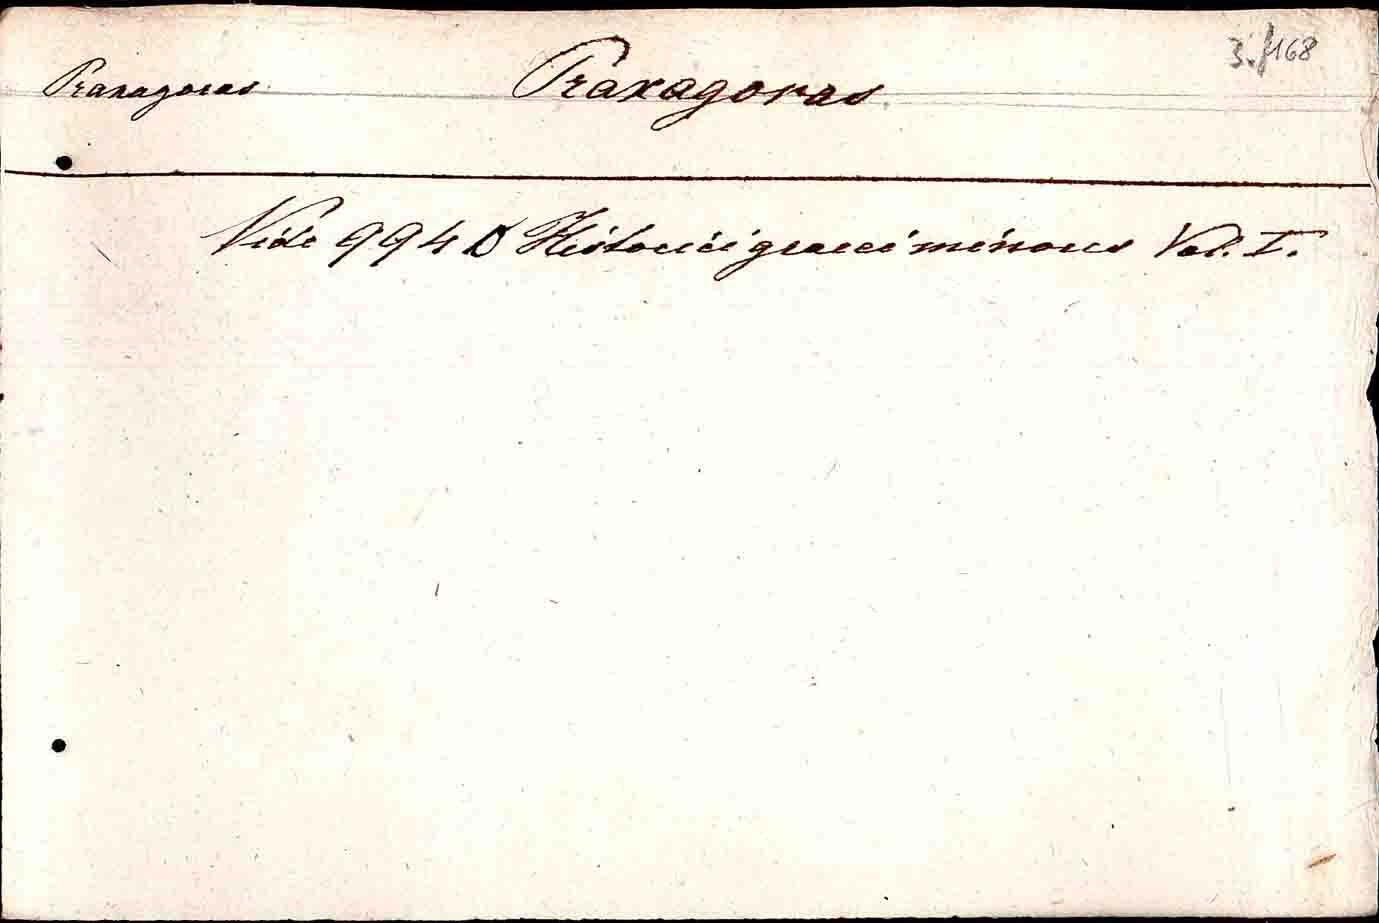 3./168
Praxagoras Praxagoras
Vide 994 D Historici graeci minores Vol. I.